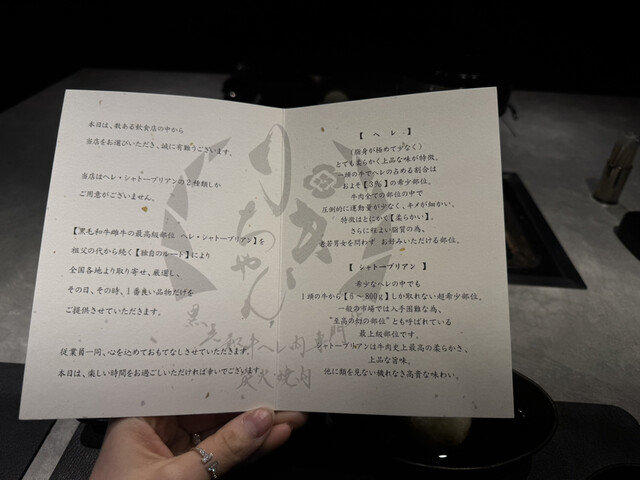 本日は、数ある飲食店の中から
当店をお選びいただき、誠に有難うございます。
当店はヘレ・シャトーブリアンの2種類しか
ご用意がございません。
【黒毛和牛雌牛の最高級部位 ヘレ・シャトーブリアン】を
祖父の代から続く【独自のルート】により
全国各地より取り寄せ、厳選し、
その日、その時、1番良い品物だけを
ご提供させていただきます。
従業員一同、心を込めておもてなしさせていただきます。
本日は、楽しい時間をお過ごしいただければ幸いでございます。
【 ヘレ 】
(脂身が極めて少なく)
とても柔らかく上品な味が特徴。
一頭の牛でヘレの占める割合は
およそ【3%】の希少部位。
牛肉全ての部位の中で
圧倒的に運動量が少なく、キメが細かい。
特徴はとにかく【柔らかい】。
さらに程よい脂質の為、
老若男女を問わず お好みいただける部位。
【 シャトーブリアン 】
希少なヘレの中でも
1頭の牛から【6〜800g】しか取れない超希少部位。
一般の市場では入手困難な為、
"至高の幻の部位"とも呼ばれている
最上級部位。
シャトーブリアンは牛肉史上最高の柔らかさ、
上品な旨味。
他に類を見ない穢れなき高貴な味わい。
りかちゃん
黒毛和牛ヘレ肉専門
炭火焼肉